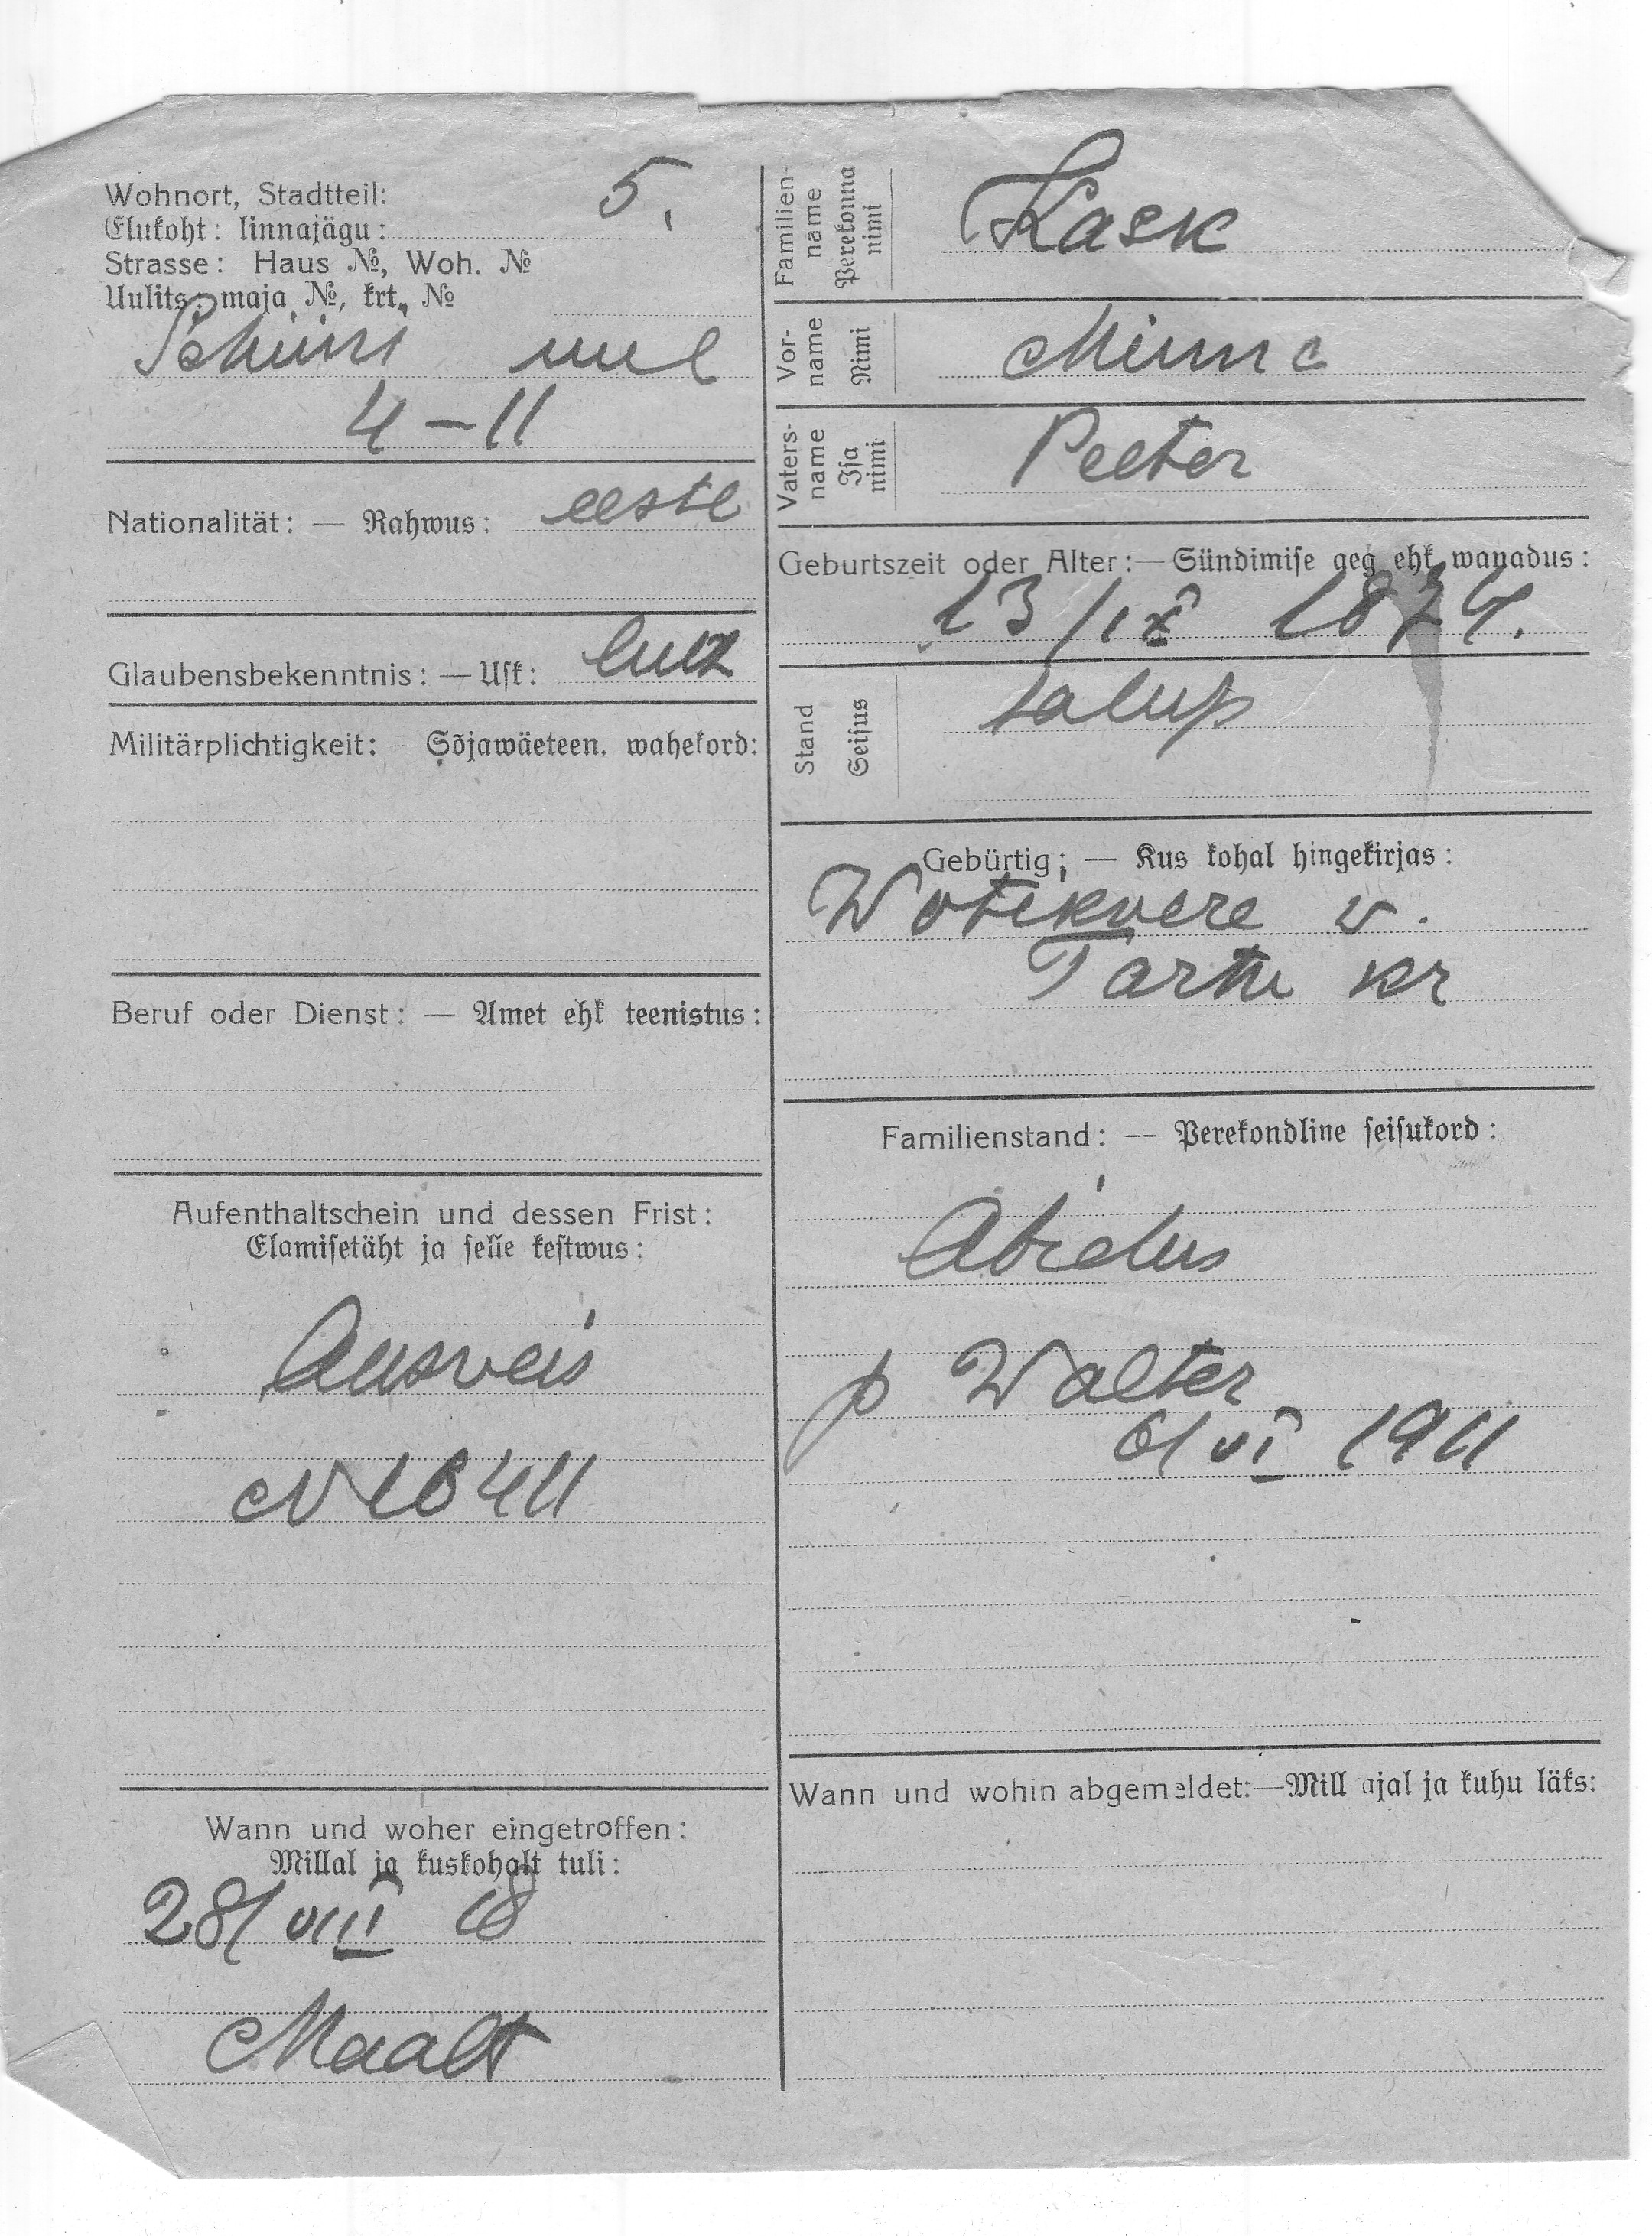 Wohnort, Stadtteil: 5.
Elukoht: linnajägu:
Strasse: Haus №, Woh. №
Uulits: maja №, krt. №
4-11
Nationalität: — Rahwus: eestl
Glaubensbekenntnis: — Usk: lut
Militärplichtigkeit: — Sõjawäeteen. wahekord:
Beruf oder Dienst: — Amet ehk teenistus:
Aufenthaltschein und dessen Frist:
Elamisetäht ja selle kestwus:
Ausveis
N 10411
Wann und woher eingetroffen:
Millal ja kuskohalt tuli:
28/VIII 18
Maalt
Familien-
name
Perekonna
nimi
Kask
Vor-
name
Nimi
Minna
Vaters-
name
Isa
nimi
Peeter
Geburtszeit oder Alter: — Sündimise aeg ehk wanadus:
13/IX 1874.
Stand
Seisus
talup
Gebürtig: — Kus kohal hingekirjas:
Wotikvere v.
Tartu kr
Familienstand: — Perekondline seisukord:
Abielus
p Walter
6/VI 1911
Wann und wohin abgemeldet: — Mill ajal ja kuhu läks: